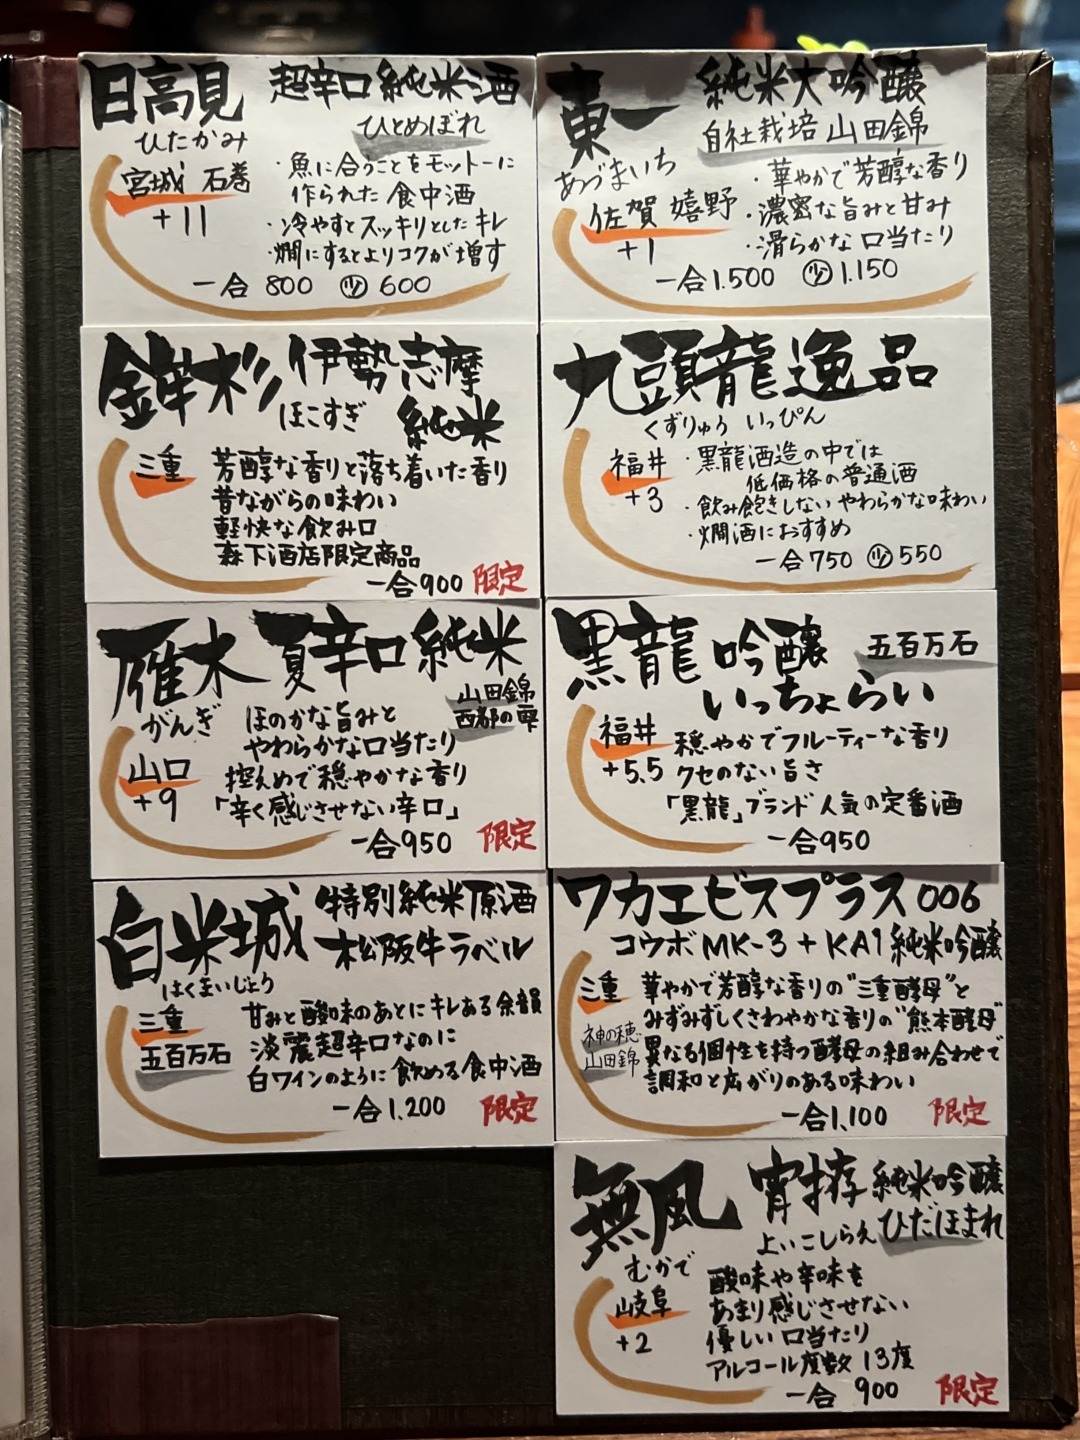 日高見 超辛口 純米酒
ひたかみ ひとめぼれ
宮城 石巻
+11
・魚に合うことをモットーに
作られた食中酒
・冷やすとスッキリとしたキレ
・燗にするとよりコクが増す
一合 800 少 600
東一 純米大吟醸
あづまいち 自社栽培 山田錦
佐賀 嬉野
+1
・華やかで芳醇な香り
・濃密な旨みと甘み
・滑らかな口当たり
一合 1.500 少 1.150
鉾杉 伊勢志摩
ほこすぎ 純米
三重
芳醇な香りと落ち着いた香り
昔ながらの味わい
軽快な飲み口
森下酒店限定商品
一合 900 限定
九頭龍 逸品
くずりゅう いっぴん
福井
+3
・黒龍酒造の中では
低価格の普通酒
・飲み飽きしない やわらかな味わい
・燗酒におすすめ
一合 750 少 550
雁木 夏辛口純米
がんぎ
山田錦
西都の雫
山口
+9
ほのかな旨みと
やわらかな口当たり
控えめで穏やかな香り
「辛く感じさせない辛口」
一合 950 限定
黒龍 吟醸 五百万石
いっちょらい
福井
+5.5
穏やかでフルーティーな香り
クセのない旨さ
「黒龍」ブランド人気の定番酒
一合 950
白米城 特別純米原酒
松阪牛ラベル
はくまいじょう
三重
五百万石
甘みと酸味のあとにキレある余韻
淡麗超辛口なのに
白ワインのように飲める食中酒
一合 1,200 限定
ワカエビスプラス 006
コウボ MK-3 + KA1 純米吟醸
三重
神の穂
山田錦
華やかで芳醇な香りの"三重酵母"と
みずみずしくさわやかな香りの"熊本酵母"
異なる個性を持つ酵母の組み合わせで
調和と広がりのある味わい
一合 1,100 限定
無風 宵拵 純米吟醸
むかで よいこしらえ ひだほまれ
岐阜
+2
酸味や辛味を
あまり感じさせない
優しい口当たり
アルコール度数 13度
一合 900 限定